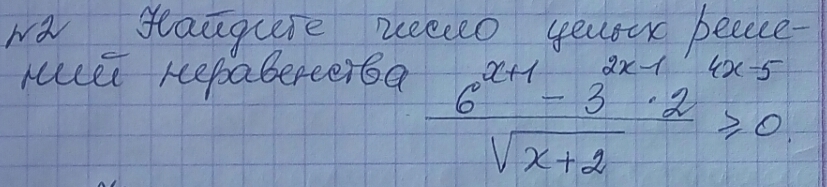 №2 Найдите число целых реше-
ний неравенства
(6^(x+1) - 3^(2x-1) · 2^(4x-5)) / √(x+2) ≥ 0.